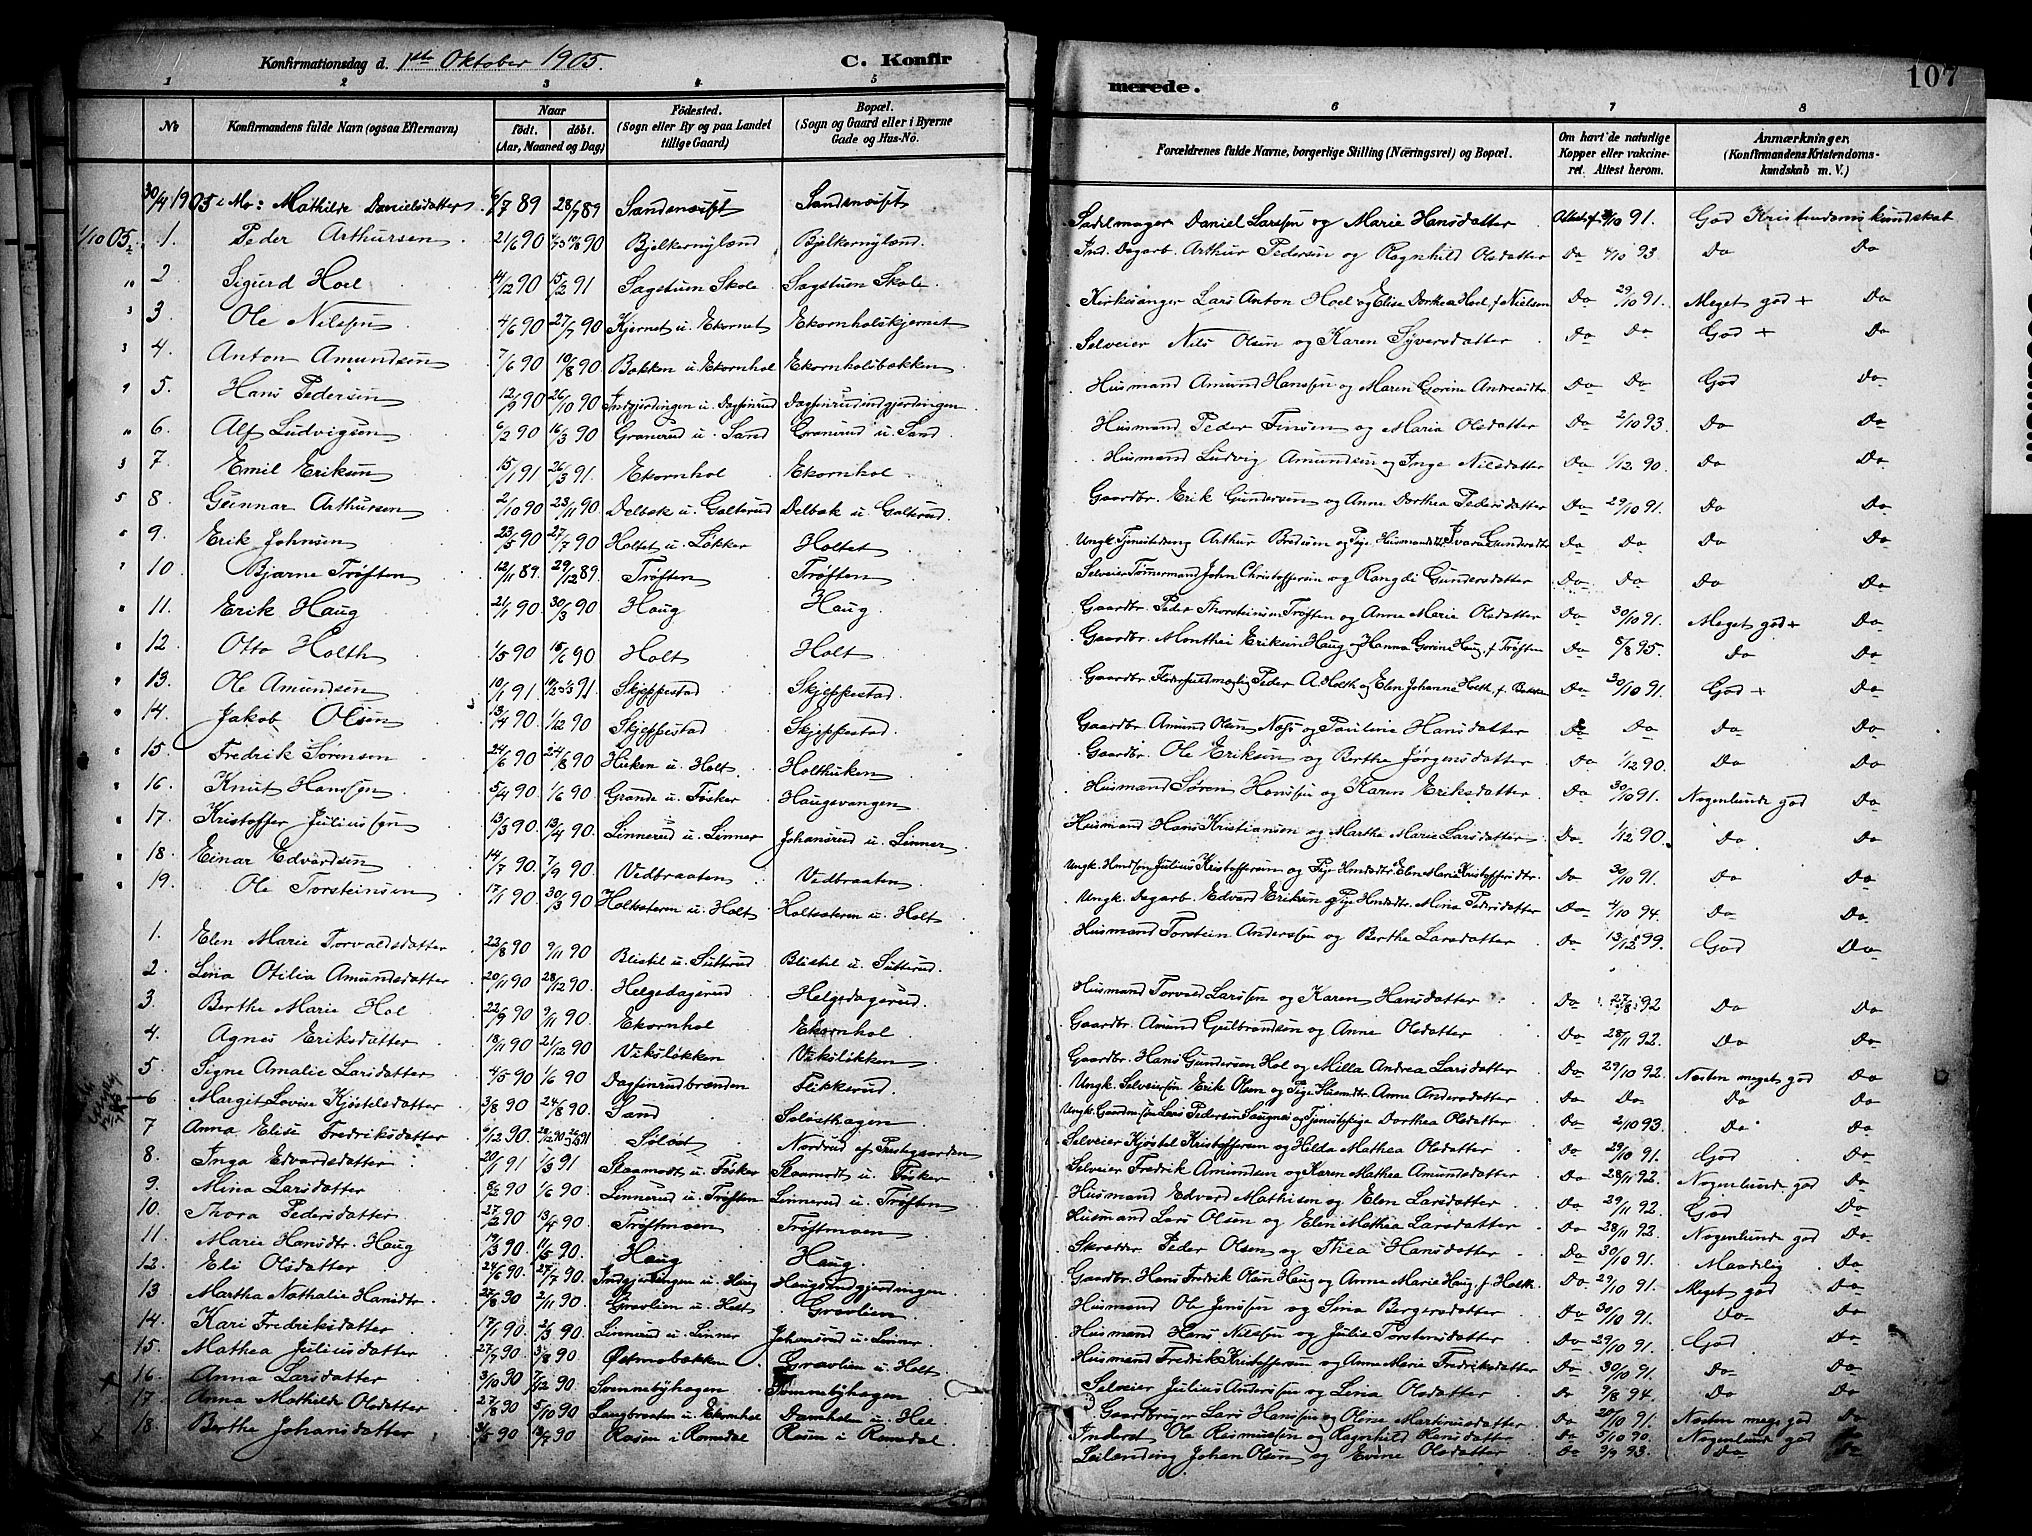 Konfirmationsdag d. 1ste Oktober 1905. C. Konfir
merede. 107
1 2 3 4 5 6 7 8
No Konfirmandens fulde Navn (ogsaa Efternavn) Naar født. døbt. (Aar, Maaned og Dag) Fødested. (Sogn eller By og paa Landet tillige Gaard) Bopæl. (Sogn og Gaard eller i Byerne Gade og Hus-No.
Forældrenes fulde Navne, borgerlige Stilling (Næringsvei) og Bopæl. Om havt de naturlige Kopper eller vakcineret. Attest herom. Anmærkninger, (Konfirmandens Kristendomskundskab m. V.)
30/4 1905 Mathilde Danielsdatter 28/7 89 Sadelmager Daniel Larssen og Marie Hansdatter 91. God Kristendomskundskab
1/10 05. 1. Peder Arthursen 21/6 90 Bjelkernyland Bjelkernyland Ind. Dagarb. Arthur Pedersen og Ragnhild Olsdatter Do 4/10 93 Do Do
2 Sigurd Hoel 14/12 90 15/2 91 Sagstuen Skole Sagstuen Skole Kirkesanger Lars Anton Hoel og Elise Dorthea Hoel f. Nielsen Do 29/10 91. Meget god + Do
3 Ole Nilssen 4/6 90 27/7 90 Kjernet u. Ekornet Ekornholskjernet Selveier Nils Olsen og Karen Syversdatter Do Do God + Do
4. Anton Amundsen 7/6 90 10/8 90 Bakken u. Ekornhol Ekornholsbakken Husmand Amund Hanssen og Maren Gorine Andreasdtr Do Do God Do
5. Hans Pedersen 12/9 90 26/10 90 Indgjerdingen u. Dagfinrud Dagfinrudindgjerdingen Husmand Peder Finsen og Maria Olsdatter Do 2/10 93. Do Do
6. Alf Ludvigsen 6/2 90 16/3 90 Granerud u. Sand Granerud u. Sand Husmand Ludvig Amundsen og Inge Nilsdatter Do 1/12 90. Do Do
7. Emil Eriksen 15/1 91 26/3 91. Ekornhol Ekornhol Gaardbr. Erik Gundersen og Anne Dorthea Pedersdatter Do 29/10 91. Do Do
8. Gunnar Arthursen 2/10 90 23/11 90 Delbak u. Galterud Delbak u. Galterud Ungk. Tjenestedreng Arthur Bredesen og Pige Husmandsdtr. Ivara Gundersdtr Do Do Do Do
9. Erik Johnsen 23/5 90 27/7 90 Holtet u. Løkker Holtet Selveier Tømmermand John Christoffersen og Rangdi Gundersdatter Do Do Do
10. Bjarne Trøften 12/11 89. 29/12 89 Trøften Trøften Gaardbr. Peder Thorsteinsen Trøften og Anne Marie Olsdatter Do 30/10 91. Meget god + Do
11. Erik Haug 21/1 90 30/3 90 Haug Haug Gaardbr. Monthei Eriksen Haug og Hanna Gorine Haug f. Trøften Do 5/8 95. Do Do
12. Otto Holth 1/5 90 15/6 90 Holt Holt Gaardbr. Peder A. Holth og Elen Johanne Holth f. Do 30/10 91. God + Do
13. Ole Amundsen 10/1 91 91 Skjeppestad Skjeppestad Gaardbr. Amund Olsen Næss og Pauline Hansdatter Do Do Do Do
14. Jakob Olsen 13/4 90 1/12 90 Skjeppestad Skjeppestad Gaardbr. Ole Eriksen og Berthe Jørgensdatter Do 1/12 90. Do Do
15. Fredrik Sørensen 24/6 90 24/8 90 Huken u. Holt. Holthuken Husmand Søren Hanssen og Karen Eriksdatter Do 30/10 91. Nogenlunde god Do
16. Knut Hanssen 5/4 90 1/6 90 Grande u. Fosker Haugsvangen Husmand Hans Kristiansen og Marthe Marie Larsdatter Do 1/12 90. Do Do
17. Kristoffer Juliussen 13/3 90 13/4 90 Linnerud u. Linner Johansrud u. Linner Ungk. Julius Kristoffersen og Pige Elen Maria Kristoffersdtr. Do 30/10 91. Do Do
18. Einar Edvardsen 14/7 90. 7/9 90 Vedbraaten Vedbraaten Ungk. Dagarb. Edvard Eriksen og Pige Mina Pedersdatter Do 4/10 94. Do Do
19. Ole Torsteinsen 17/1 90 30/3 90 Holtsæteren u. Holt Holtsæteren u. Holt Husmand Torstein Anderssen og Berthe Larsdatter Do 13/12 99. God Do
1. Elen Marie Torvaldsdatter 22/8 90 9/11 90 Blistil u. Sutterud. Blistil u. Sutterud. Husmand Torvald Larssen og Karen Hansdatter Do 92 Do Do
2. Lina Otilia Amundsdatter 20/11 90 28/12 90 Helgedagsrud Helgedagsrud Gaardbr. Amund Gulbrandsen og Anne Olsdatter Do 28/11 92. Do Do
3. Berthe Marie Hol 22/9 90 9/11 90. Ekornhol Ekornhol Gaardbr. Hans Gundersen Hol og Milla Andrea Larsdatter Do 29/10 92. Næsten meget god Do
4. Agnes Eriksdatter 18/11 90 21/12 90. Viksløkken Viksløkken Ungk. Selveiersøn Erik Olsen og Pige Husmdtr. Anne Andersdatter Do Do Do Do
5. Signe Amalie Larsdatter 4/5 90 1/6 90 Dagfinrudbrænden Flikkerud Ungk. Lars Pedersen og Tjenestepige Dorthea Olsdatter Do 2/10 93. Do Do
6 Margit Lovise Kjøstelsdatter 3/8 90 24/8 90. Sand Solosthagen Selveier Kjøstel Kristoffersen og Hilda Mathea Olsdatter Do 29/10 91. God Do
7 Anna Elise Fredriksdatter 6/12 90. Soløst Nordrud af Prestegaarden Selveier Fredrik Amundsen og Karen Mathea Amundsdatter Do 28/11 92. Nogenlunde god Do
8. Inga Edvardsdatter 20/1 91 1/3 91 Skaamodt u. Fosker Skaamodt u. Fosker Husmand Edvard Mathisen og Elen Larsdatter Do 29/11 92. God Do
9. Mina Larsdatter 8/2 90 1/6 90. Linnerud u. Trøften Linnerud u. Trøften Husmand Lars Olsen og Elen Mathea Larsdatter Do 28/11 92. Nogenlunde god Do
10. Thora Pedersdatter 27/2 90 13/4 90 Trøftmoen Trøftmoen Skredder Peder Olsen og Thea Hansdatter Do 30/10 91. Maadelig Do
11. Marie Hansdtr. Haug 19/3 90 11/5 90. Haug Haug Gaardbr. Hans Fredrik Olsen Haug og Anne Marie Haug f. Holth. Do 29/10 91. Meget god Do
12. Eli Olsdatter 24/6 90. 27/7 90. Indgjerdingen u. Haug Haugsindgjerdingen Husmand Ole Jenssen og Lina Bergersdatter Do 30/10 91. Do Do
13. Martha Nathalie Hansdtr. 27/8 90 2/11 90 Gravlien u. Holt Gravlien Husmand Hans Nilssen og Julie Torstensdatter Do 29/10 91. God Do
14. Kari Fredriksdatter 17/1 90. 2/3 90. Linnerud u. Linner Johansrud u. Linner Husmand Fredrik Kristoffersen og Anne Marie Fredriksdatter Do 30/10 91. Do Do
15. Mathea Juliusdatter 27/7 90 3/8 90 Østmobakken Gravlien u. Holt Selveier Julius Anderssen og Lina Olsdatter Do 9/8 94. Do Do
16. Anna Larsdatter 3/10 90 7/12 90. Sønnebyhagen Sønnebyhagen Gaardbruger Lars Hanssen og Oline Martinusdatter Do 20/10 91. Næsten mege god Do
17. Anna Mathilde Olsdatter 27/8 90 5/10 90 Langbraaten u. Ekornhol Damholen u. Hol Inderst Ole Rasmussen og Ragnhild Hansdatter Do 5/10 90. Nogenlunde god Do
18. Berthe Johansdatter 90 90 Rosen i Romedal Rosen i Romedal Leilending Johan Olsen og Evine Olsdatter Do 9/9 93. Do Do